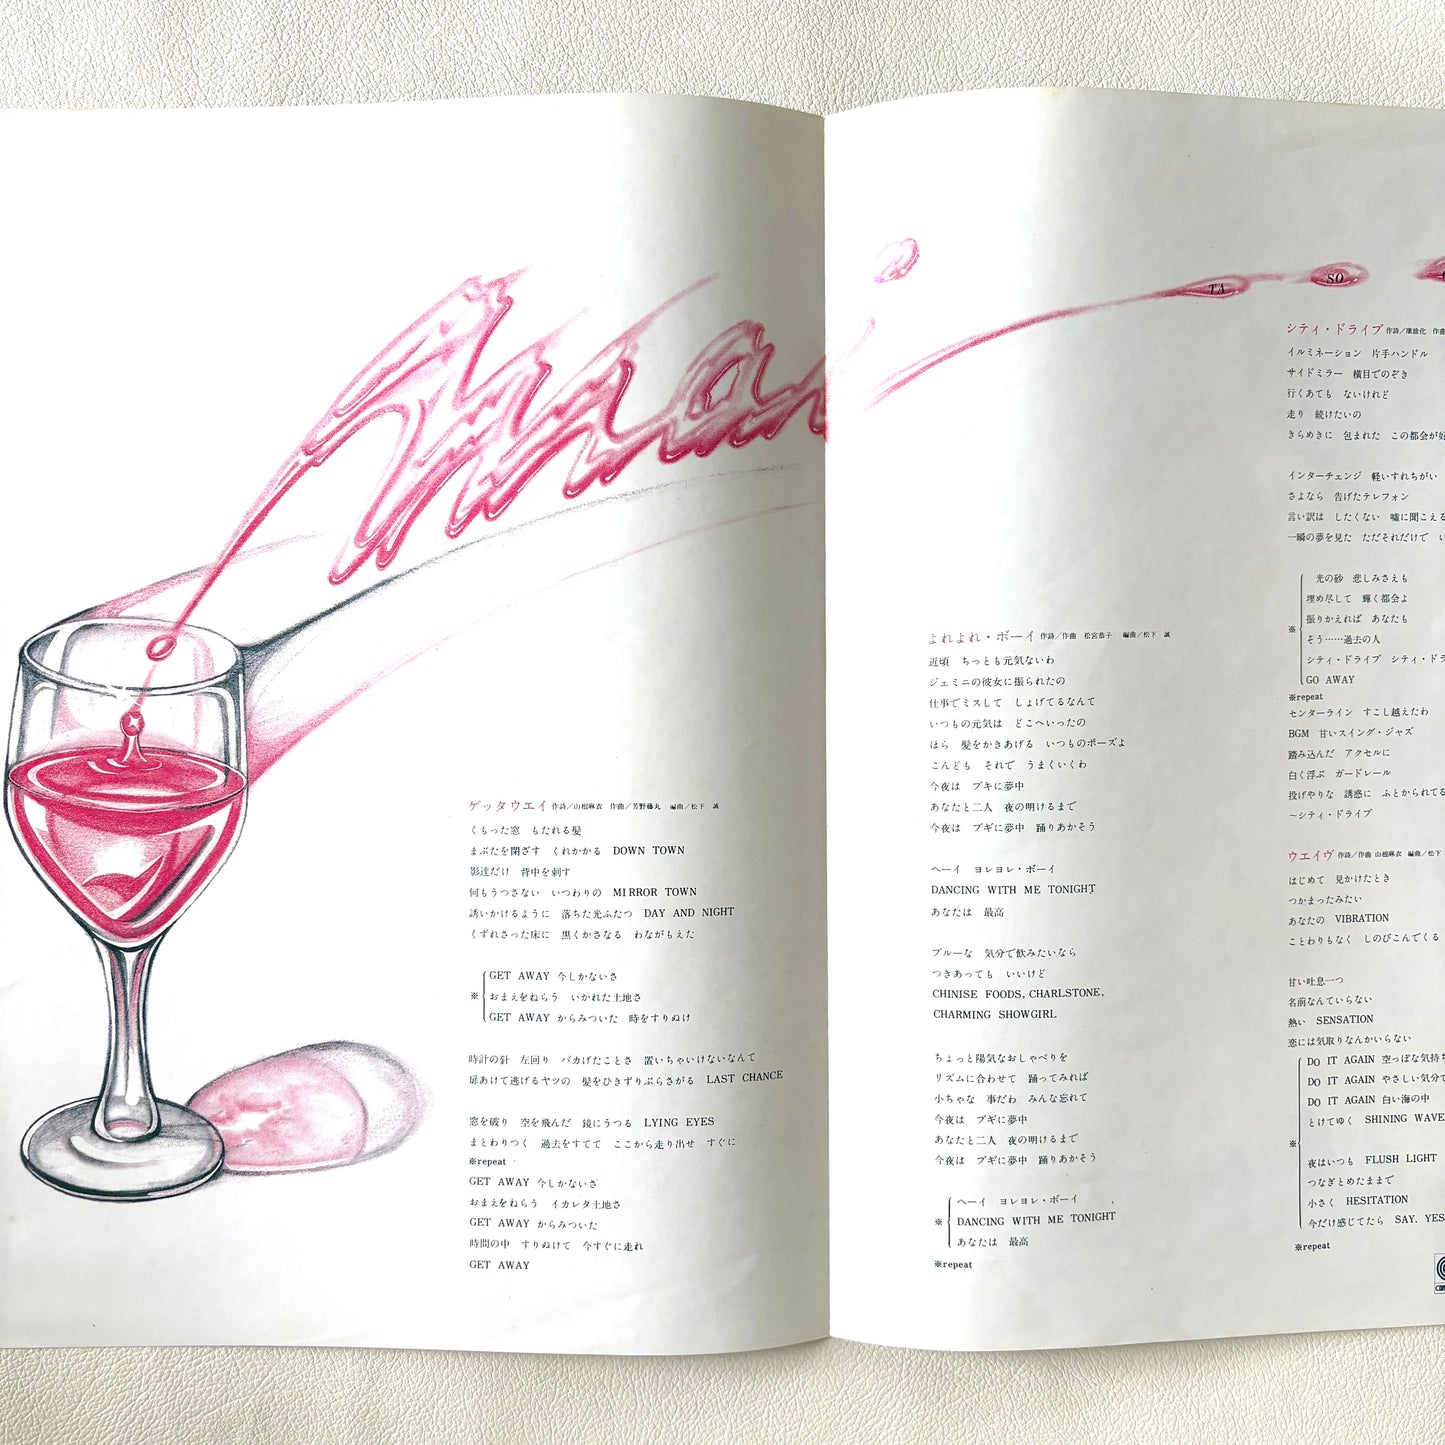 TA
SO
ゲッタウエイ 作詩／山根麻衣 作曲／芳野藤丸 編曲／松下 誠
くもった窓 もたれる髪
まぶたを閉ざす くれかかる DOWN TOWN
影達だけ 背中を刺す
何もうつさない いつわりの MIRROR TOWN
誘いかけるように 落ちた光ふたつ DAY AND NIGHT
くずれさった床に 黒くかさなる わながもえた
GET AWAY 今しかないさ
※ おまえをねらう いかれた土地さ
GET AWAY からみついた 時をすりぬけ
時計の針 左回り バカげたことさ 置いちゃいけないなんて
扉あけて逃げるヤツの 髪をひきずりぶらさがる LAST CHANCE
窓を破り 空を飛んだ 鏡にうつる LYING EYES
まとわりつく 過去をすてて ここから走り出せ すぐに
※repeat
GET AWAY 今しかないさ
おまえをねらう イカレタ土地さ
GET AWAY からみついた
時間の中 すりぬけて 今すぐに走れ
GET AWAY
よれよれ・ボーイ 作詩／作曲 松宮恭子 編曲／松下 誠
近頃 ちっとも元気ないわ
ジェミニの彼女に振られたの
仕事でミスして しょげてるなんて
いつもの元気は どこへいったの
ほら 髪をかきあげる いつものポーズよ
こんども それで うまくいくわ
今夜は ブギに夢中
あなたと二人 夜の明けるまで
今夜は ブギに夢中 踊りあかそう
ヘーイ ヨレヨレ・ボーイ
DANCING WITH ME TONIGHT
あなたは 最高
ブルーな 気分で飲みたいなら
つきあっても いいけど
CHINISE FOODS, CHARLSTONE,
CHARMING SHOWGIRL
ちょっと陽気なおしゃべりを
リズムに合わせて 踊ってみれば
小ちゃな 事だわ みんな忘れて
今夜は ブギに夢中
あなたと二人 夜の明けるまで
今夜は ブギに夢中 踊りあかそう
ヘーイ ヨレヨレ・ボーイ
※ DANCING WITH ME TONIGHT
あなたは 最高
※repeat
シティ・ドライブ 作詩／康珍化 作曲
イルミネーション 片手ハンドル
サイドミラー 横目でのぞき
行くあても ないけれど
走り 続けたいの
きらめきに 包まれた この都会が
インターチェンジ 軽いすれちがい
さよなら 告げたテレフォン
言い訳は したくない 嘘に聞こえる
一瞬の夢を見た ただそれだけで
光の砂 悲しみさえも
埋め尽して 輝く都会よ
※ 振りかえれば あなたも
そう……過去の人
シティ・ドライブ シティ・ドラ
GO AWAY
※repeat
センターライン すこし越えたわ
BGM 甘いスイング・ジャズ
踏み込んだ アクセルに
白く浮ぶ ガードレール
投げやりな 誘惑に ふとかられてる
～シティ・ドライブ
ウエイヴ 作詩／作曲 山根麻衣 編曲／松下
はじめて 見かけたとき
つかまったみたい
あなたの VIBRATION
ことわりもなく しのびこんでくる
甘い吐息一つ
名前なんていらない
熱い SENSATION
恋には気取りなんかいらない
DO IT AGAIN 空っぽな気持ち
DO IT AGAIN やさしい気分で
DO IT AGAIN 白い海の中
とけてゆく SHINING WAVE
※
夜はいつも FLUSH LIGHT
つなぎとめたままで
小さく HESITATION
今だけ感じてたら SAY. YES
※repeat